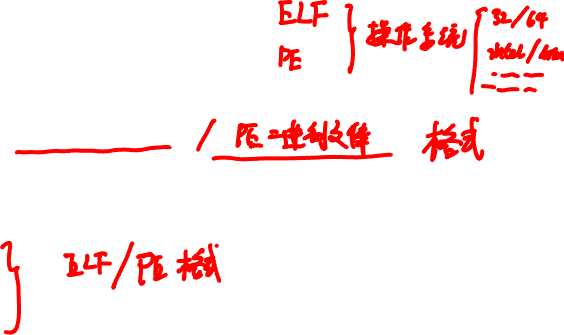 ELF
PE
操作系统
32/64
intel/arm
/ PE二进制文件 格式
ELF/PE 格式